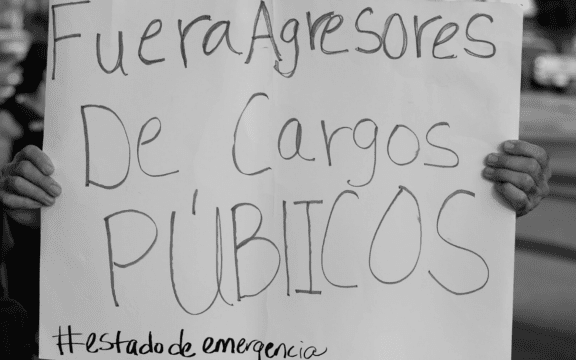 FueraAgresores
De Cargos
PÚBlICOS
#estado de emergencia